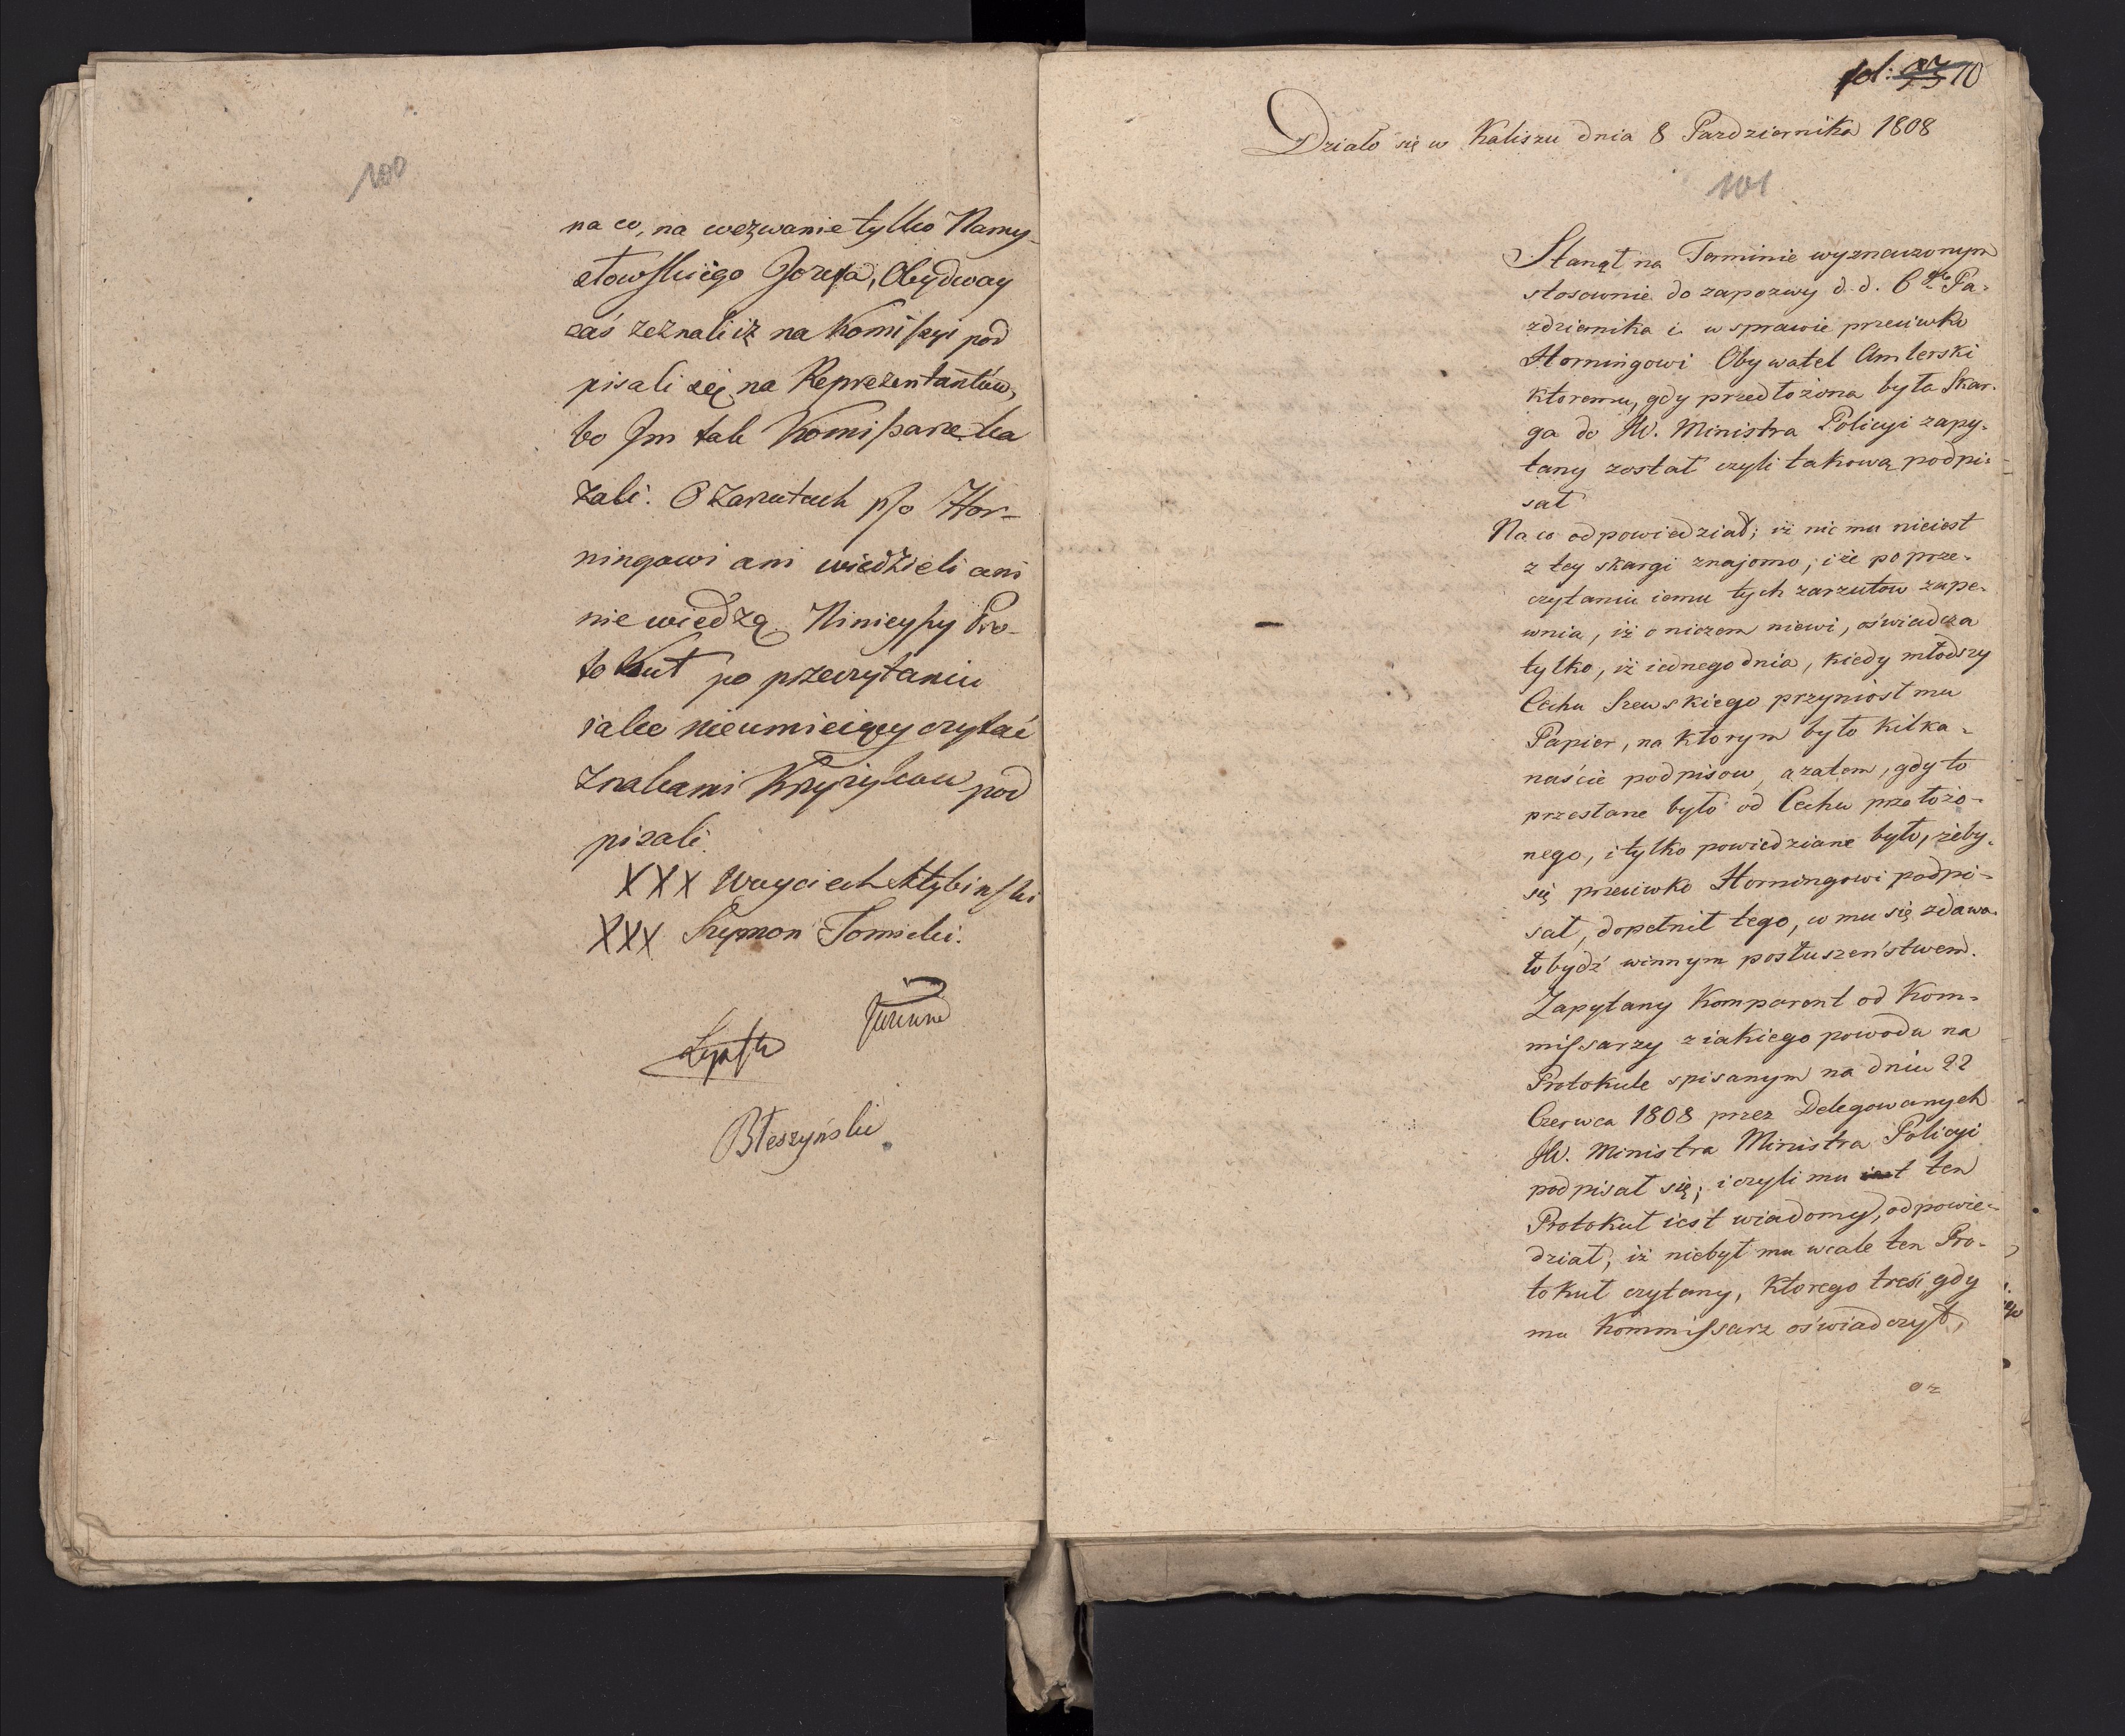 100
na co, na wezwanie tylko Namy-
słowskiego Jozefa, Obydway
zaś zeznali iż na Komissyi pod
pisali się na Reprezentantów,
bo Im tak Komissarze ka
zali. O Zarzutach p/o Hor-
ningowi ani wiedzieli ani
nie wiedzą. Ninieyszy Pro-
tokuł po przeczytaniu
iako nieumieiący czytać
Znakami Krzyżyków pod
pisali.
XXX Woyciech
XXX Szymon Tomicki.
Błeszyński
fol: 10
Działo się w Kaliszu dnia 8 Pazdziernika 1808
101
Stanął na Terminie wyznaczonym
stosownie do zapozwy d. d. 6go Pa-
zdziernika i. w sprawie przeciwko
Horningowi Obywatel Amterski
ktoremu, gdy przedłożona była Skar-
ga do JW. Ministra Policyi zapy-
tany został czyli takową podpi-
sał
Na co odpowiedział; iż nic mu nieiest
z tey skargi znajomo; i że po prze-
czytaniu iemu tych zarzutow zape-
wnia, iż o niczem niewi, oświadcza
tylko, iż iednego dnia, kiedy młodszy
Cechu Szewskiego przyniosł mu
Papier, na ktorym było kilka-
naście podpisow, a zatem, gdy to
przesłane było od Cechu przełożo-
nego, i tylko powiedziane było, żeby
się przeciwko Horningowi podpi-
sał, dopełnił tego, co mu się zdawa-
ło bydź winnym posłuszeństwem.
Zapytany Komparent od Kom-
missarzy z iakiego powodu na
Protokule spisanym na dniu 22
Czerwca 1808 przez Delegowanych
JW. Ministra Ministra Policyi
podpisał się; i czyli mu ten
Protokuł iest wiadomy, odpowie-
dział; iż niebył mu wcale ten Pro-
tokuł czytany, ktorego treść, gdy
mu Kommissarz oświadczył,
oz